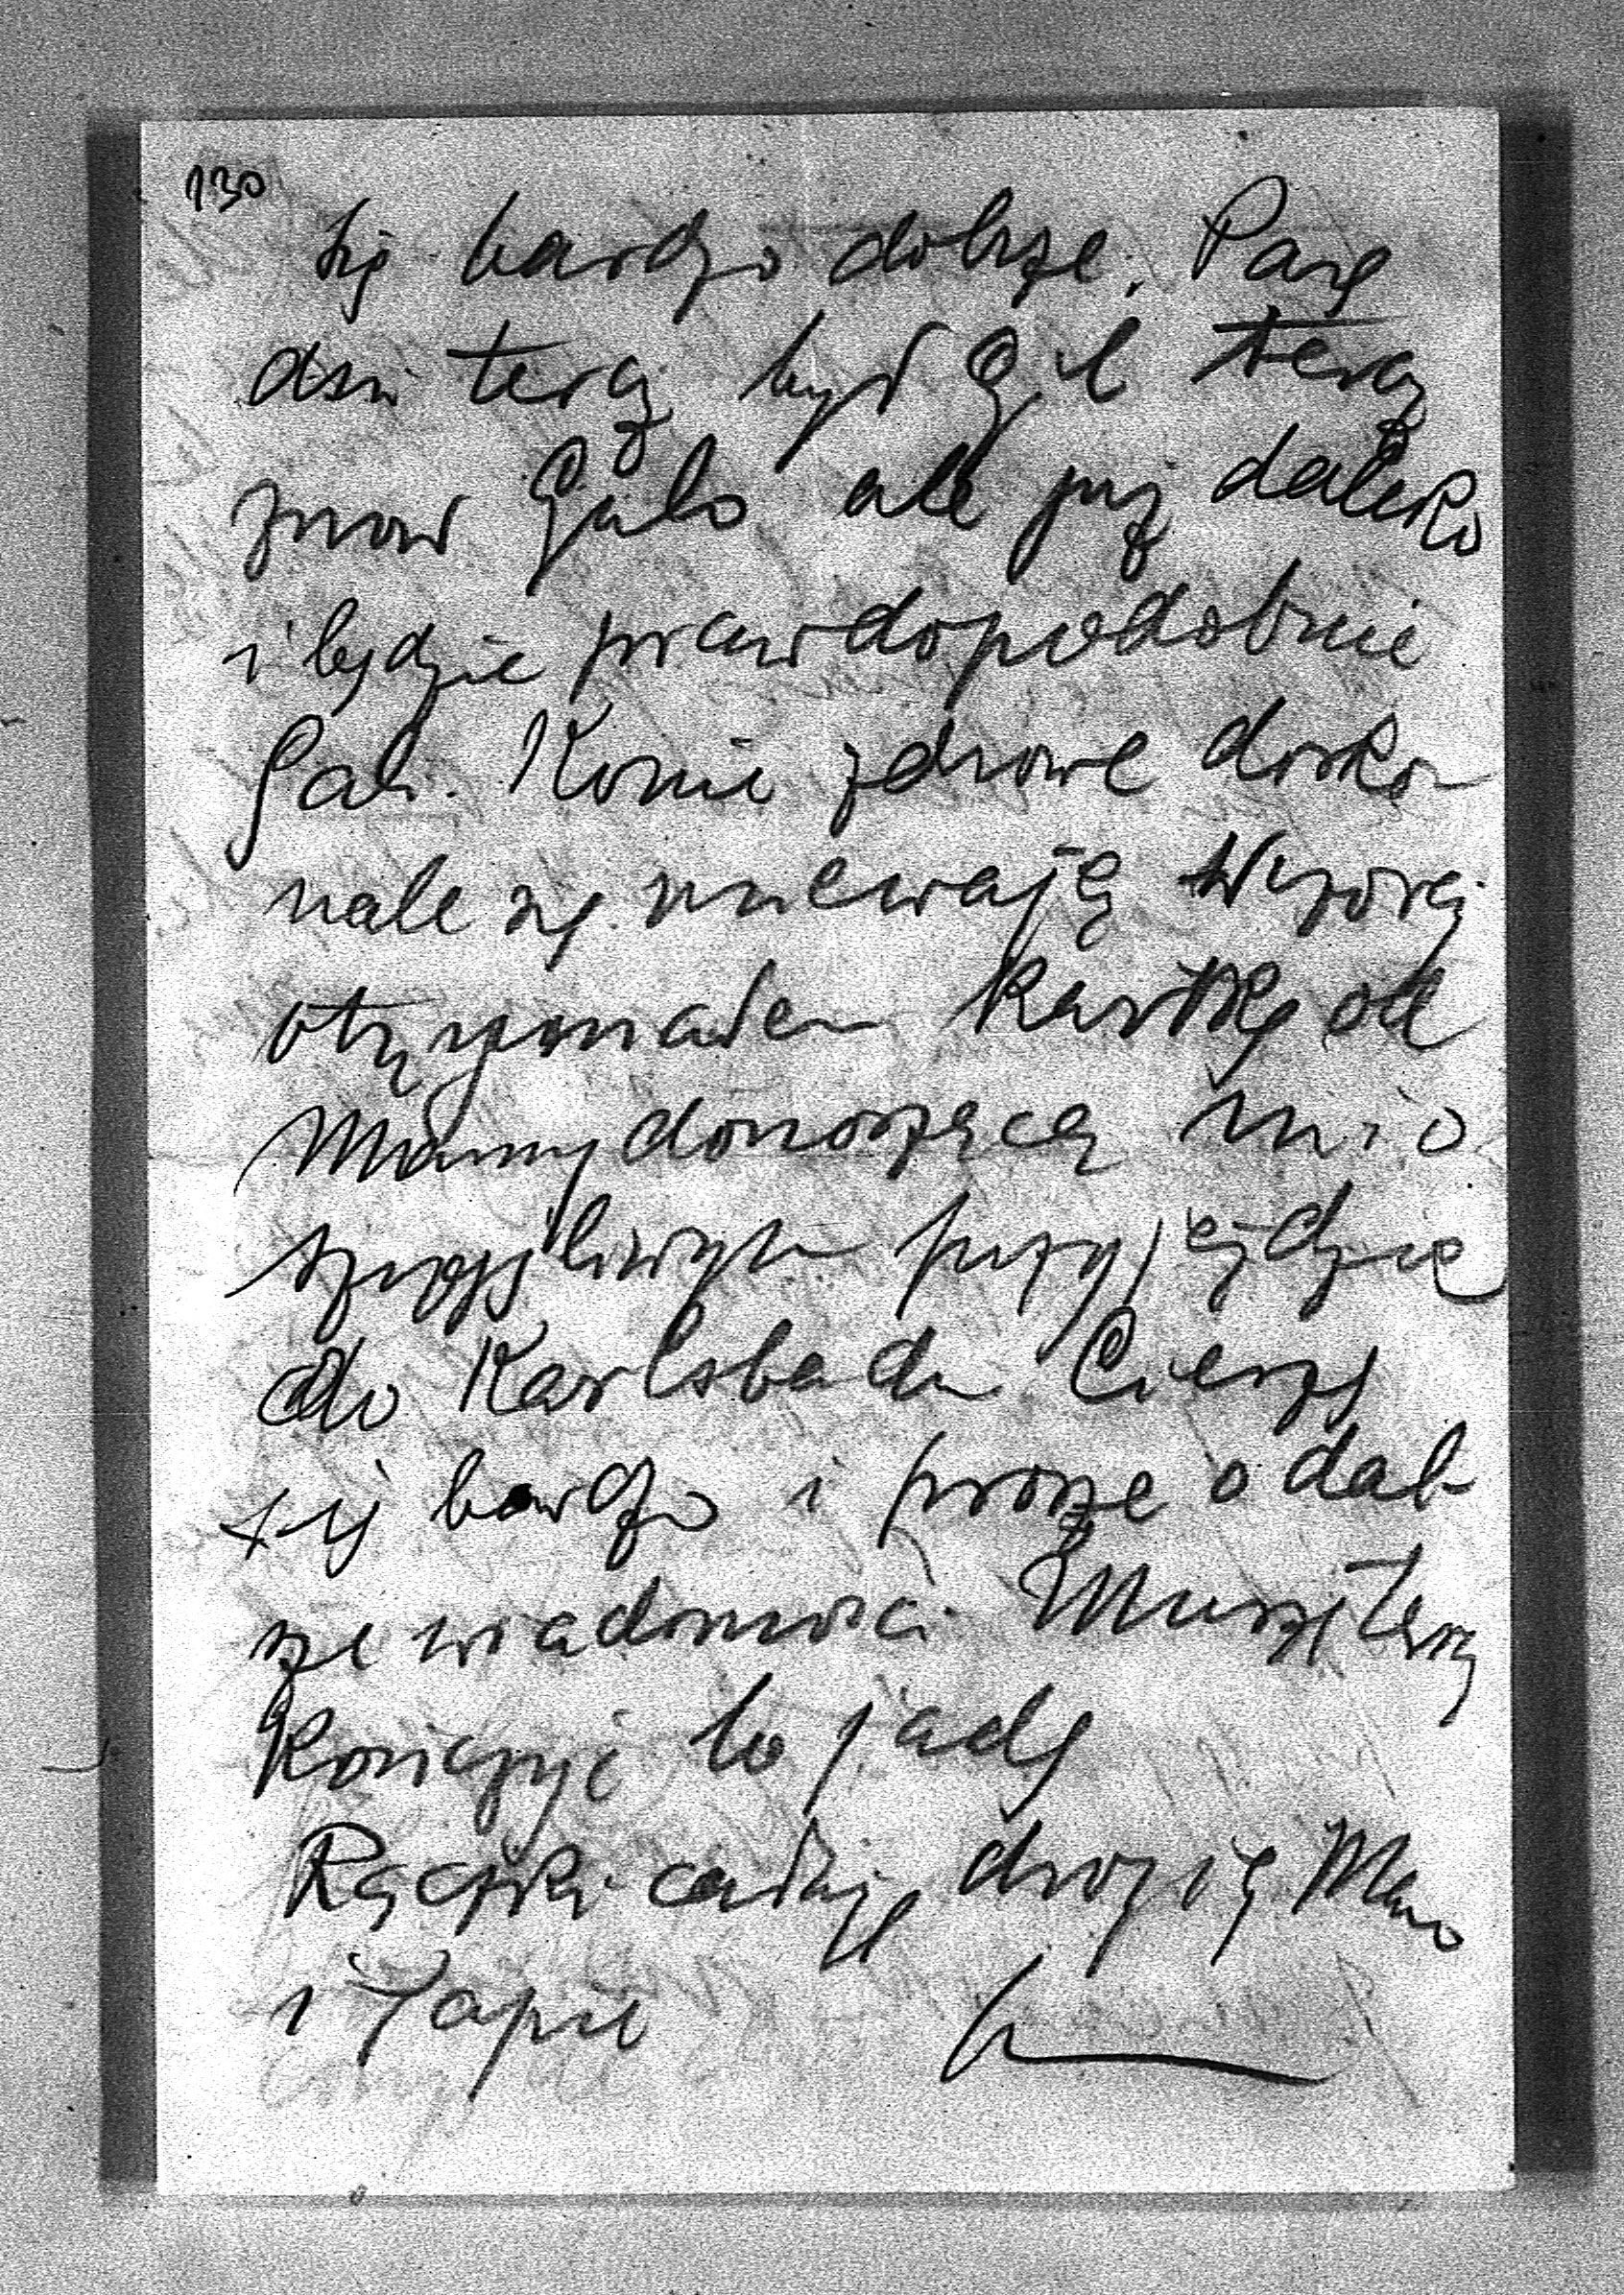 130
się bardzo dobrze. Parę
dni teraz był Gil teraz
znow Galo ale już daleko
i będzie prawdopodobnie
Gali. Konie zdrowe dosko-
nale się miewają Wczoraj
otrzymałem kartkę od
Mamy donoszącą mi o
szczęśliwym przyjeździe
do Karlsbadu Cieszę
się bardzo i proszę o dal-
sze wiadomości. Muszę teraz
kończyć bo jadę
Rączki całuję drogiej Mamo
i Tapie